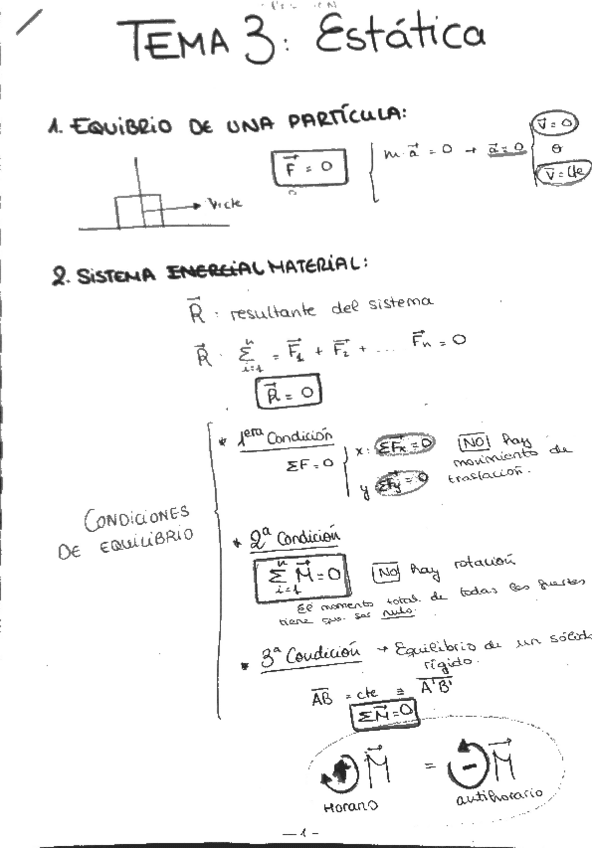 TEMA 3: Estática
1. EQUIBRIO DE UNA PARTÍCULA:
F⃗ = 0
m · a⃗ = 0 → a⃗ = 0
v⃗ = 0
o
v⃗ = cte
V=cte
2. SISTEMA ENERCIAL MATERIAL:
R⃗ : resultante del sistema
R⃗ · Σ i=1 n = F⃗1 + F⃗2 + ... F⃗n = 0
R⃗ = 0
CONDICIONES DE EQUILIBRIO
* 1era Condición
ΣF = 0
x: ΣF⃗x = 0
y ΣF⃗y = 0
NO hay
movimiento de
traslación.
* 2ª Condición
Σ i=1 n M⃗ = 0
NO hay rotación
El momento total de todas las fuertes
tiene que ser nulo.
* 3ª Condición → Equilibrio de un sólido
rígido.
AB = cte ≡ A'B'
ΣM⃗ = 0
+ M⃗ = - M⃗
Horario
antihorario
- 1 -